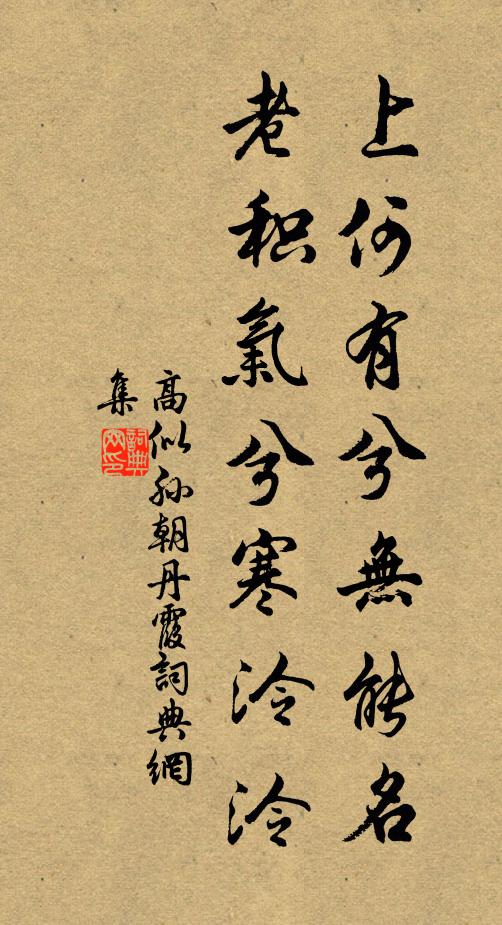 上何有兮無能名
老积氣兮寒泠泠
高似孙朝丹霞詞典網
集
詞典網印